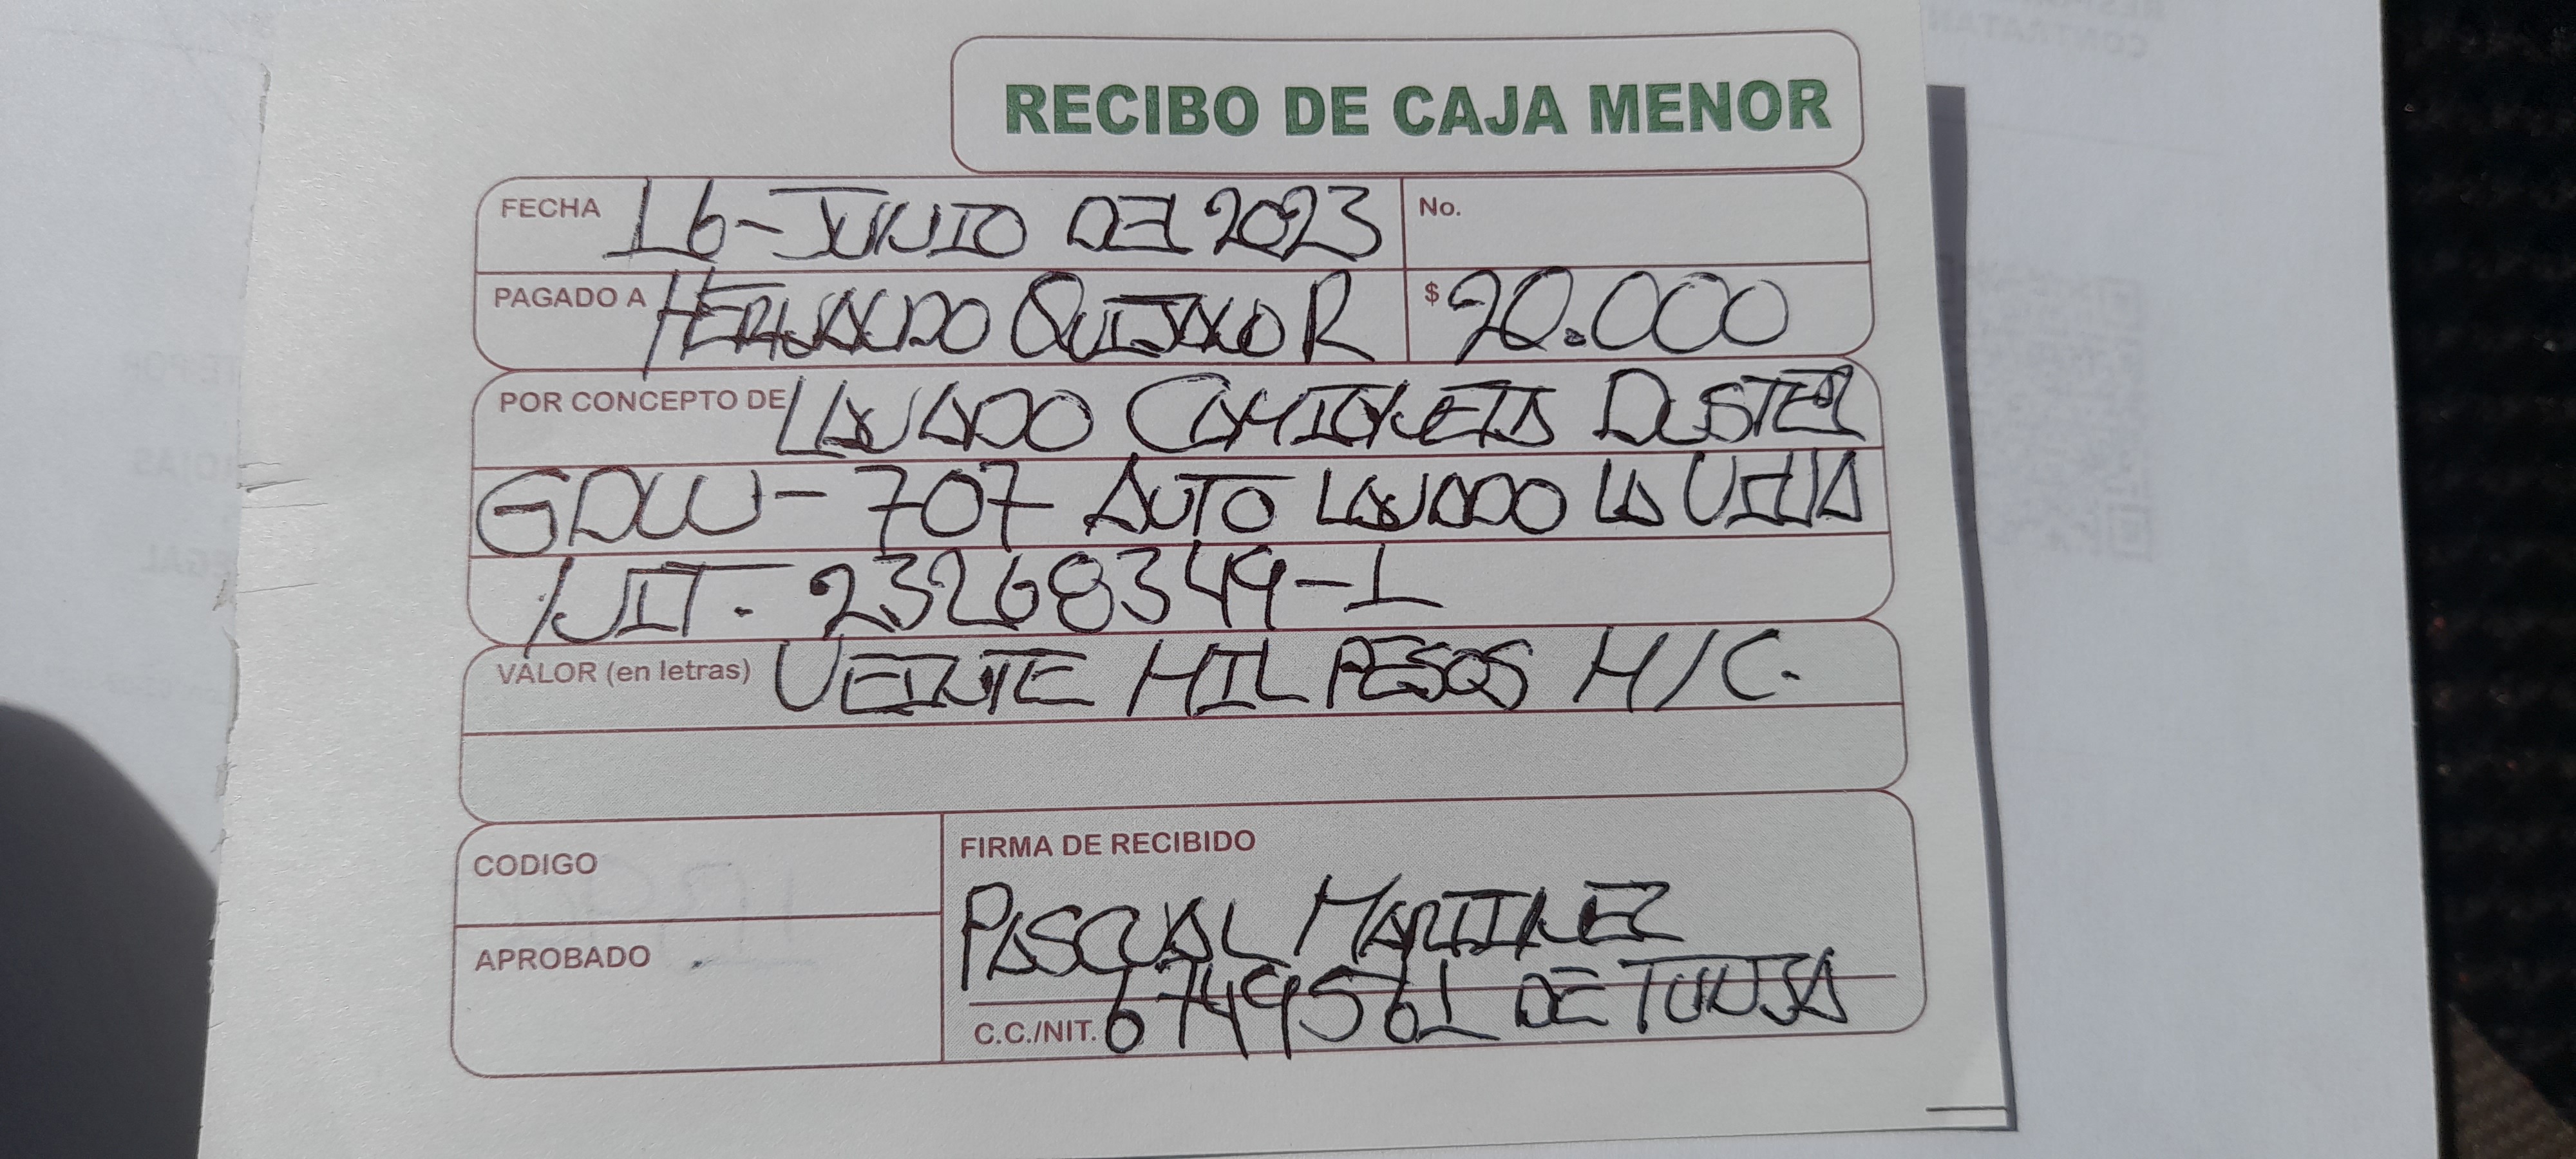 RECIBO DE CAJA MENOR
FECHA 16-JUNIO DEL 2023 No.
PAGADO A HERNANDO QUIJANO R $ 20.000
POR CONCEPTO DE LAVADO CAMIONETA DUSTER
GDW-707 AUTO LAVADO LA VEGA
NIT. 23268349-1
VALOR (en letras) VEINTE MIL PESOS M/C.
CODIGO
APROBADO
FIRMA DE RECIBIDO
PASCUAL MARTINEZ
C.C./NIT. 6749561 DE TUNJA